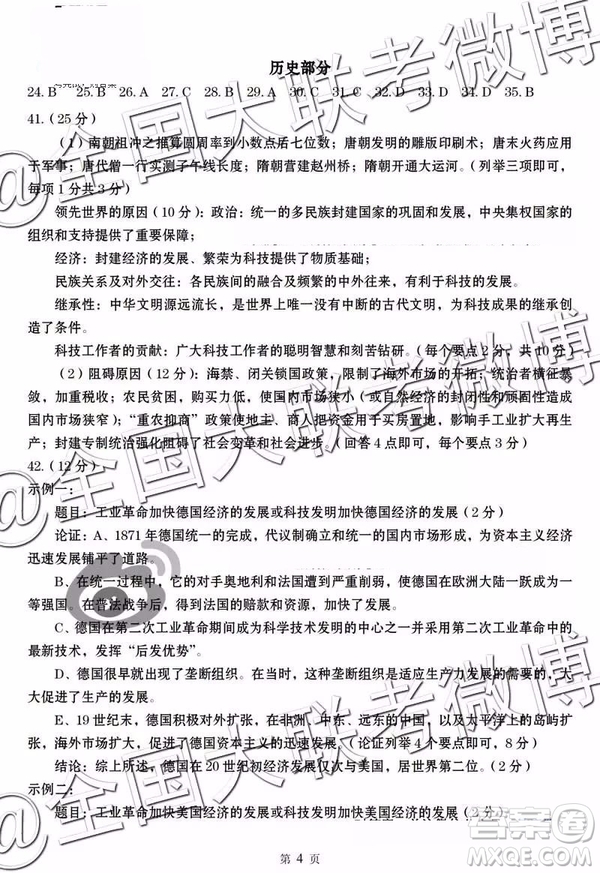 历史部分
24.B 25.B 26.A 27.C 28.B 29.B 30.C 31.C 32.D 33.D 34.D 35.B
41.(25分)
(1)南朝祖冲之推算圆周率到小数点后七位数;唐朝发明的雕版印刷术;唐末火药应用
于军事;唐代僧一行实测子午线长度;隋朝营建赵州桥;隋朝开通大运河。(列举三项即可,
每项1分共3分)
领先世界的原因(10分):政治:统一的多民族封建国家的巩固和发展,中央集权国家的
组织和支持提供了重要保障;
经济:封建经济的发展、繁荣为科技提供了物质基础;
民族关系及对外交往:各民族间的融合及频繁的中外往来,有利于科技的发展。
继承性:中华文明源远流长,是世界上唯一没有中断的古代文明,为科技成果的继承创
造了条件。
科技工作者的贡献:广大科技工作者的聪明智慧和刻苦钻研。(每个要点2分,共10分)
(2)阻碍原因(12分):海禁、闭关锁国政策,限制了海外市场的开拓;统治者横征暴
敛,加重税收;农民贫困,购买力低,使国内市场狭小(或自然经济的封闭性和顽固性造成
国内市场狭窄);“重农抑商”政策使地主、商人把资金用于买房置地,影响手工业扩大再生
产;封建专制统治强化阻碍了社会变革和社会进步。(回答4点即可,每个要点3分)
42.(12分)
示例一:
题目:工业革命加快德国经济的发展或科技发明加快德国经济的发展(2分)
论证:A、1871年德国统一的完成,代议制确立和统一的国内市场形成,为资本主义经济
迅速发展铺平了道路
B、在统一过程中,它的对手奥地利和法国遭到严重削弱,使德国在欧洲大陆一跃成为一
等强国。在普法战争后,得到法国的赔款和资源,加快了发展。
C、德国在第二次工业革命期间成为科学技术发明的中心之一并采用第二次工业革命中的
最新技术,发挥“后发优势”。
D、德国很早就出现了垄断组织。在当时,这种垄断组织能合理高效地组织生产,大
大促进了生产的发展。
E、19世纪末,德国积极对外扩张,在非洲、中东、远东的中国,以及太平洋上的岛屿扩
张,海外市场扩大,促进了德国资本主义的迅速发展。(论证列举4个要点即可,8分)
结论:综上所述,德国在20世纪初经济发展仅次与美国,居世界第二位。(2分)
示例二:
题目:工业革命加快美国经济的发展或科技发明加快美国经济的发展(2分)
第 4 页
@全国大联考微博
@全国大联考微博
@全国大联考微博
答案圈
MXQE.COM